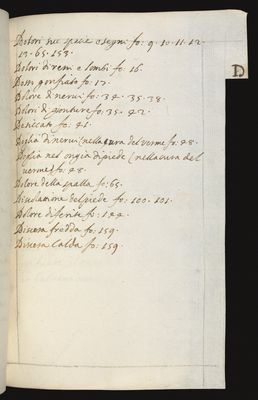 Dolori nee spale o segni fo: 9. 10. 11. 12.
13. 65. 153.
Dolori di reni e lombi fo. 16.
Doss gonfiato fo. 17.
Dolore di nervi fo: 34. 35. 38.
Dolori di gionture fo. 35. 42.
Deniccati fo. 41.
Doglia di nervi (nella cura del verme fo: 48.
Doglia nel ongia di piede (nella cura del
verme) fo: 48.
Dolore della spalla fo: 65.
Disolatione del piede fo: 100. 101.
Dolore di ferite fo: 144.
Discesa fredda fo: 159.
Discesa Calda fo: 159.
D